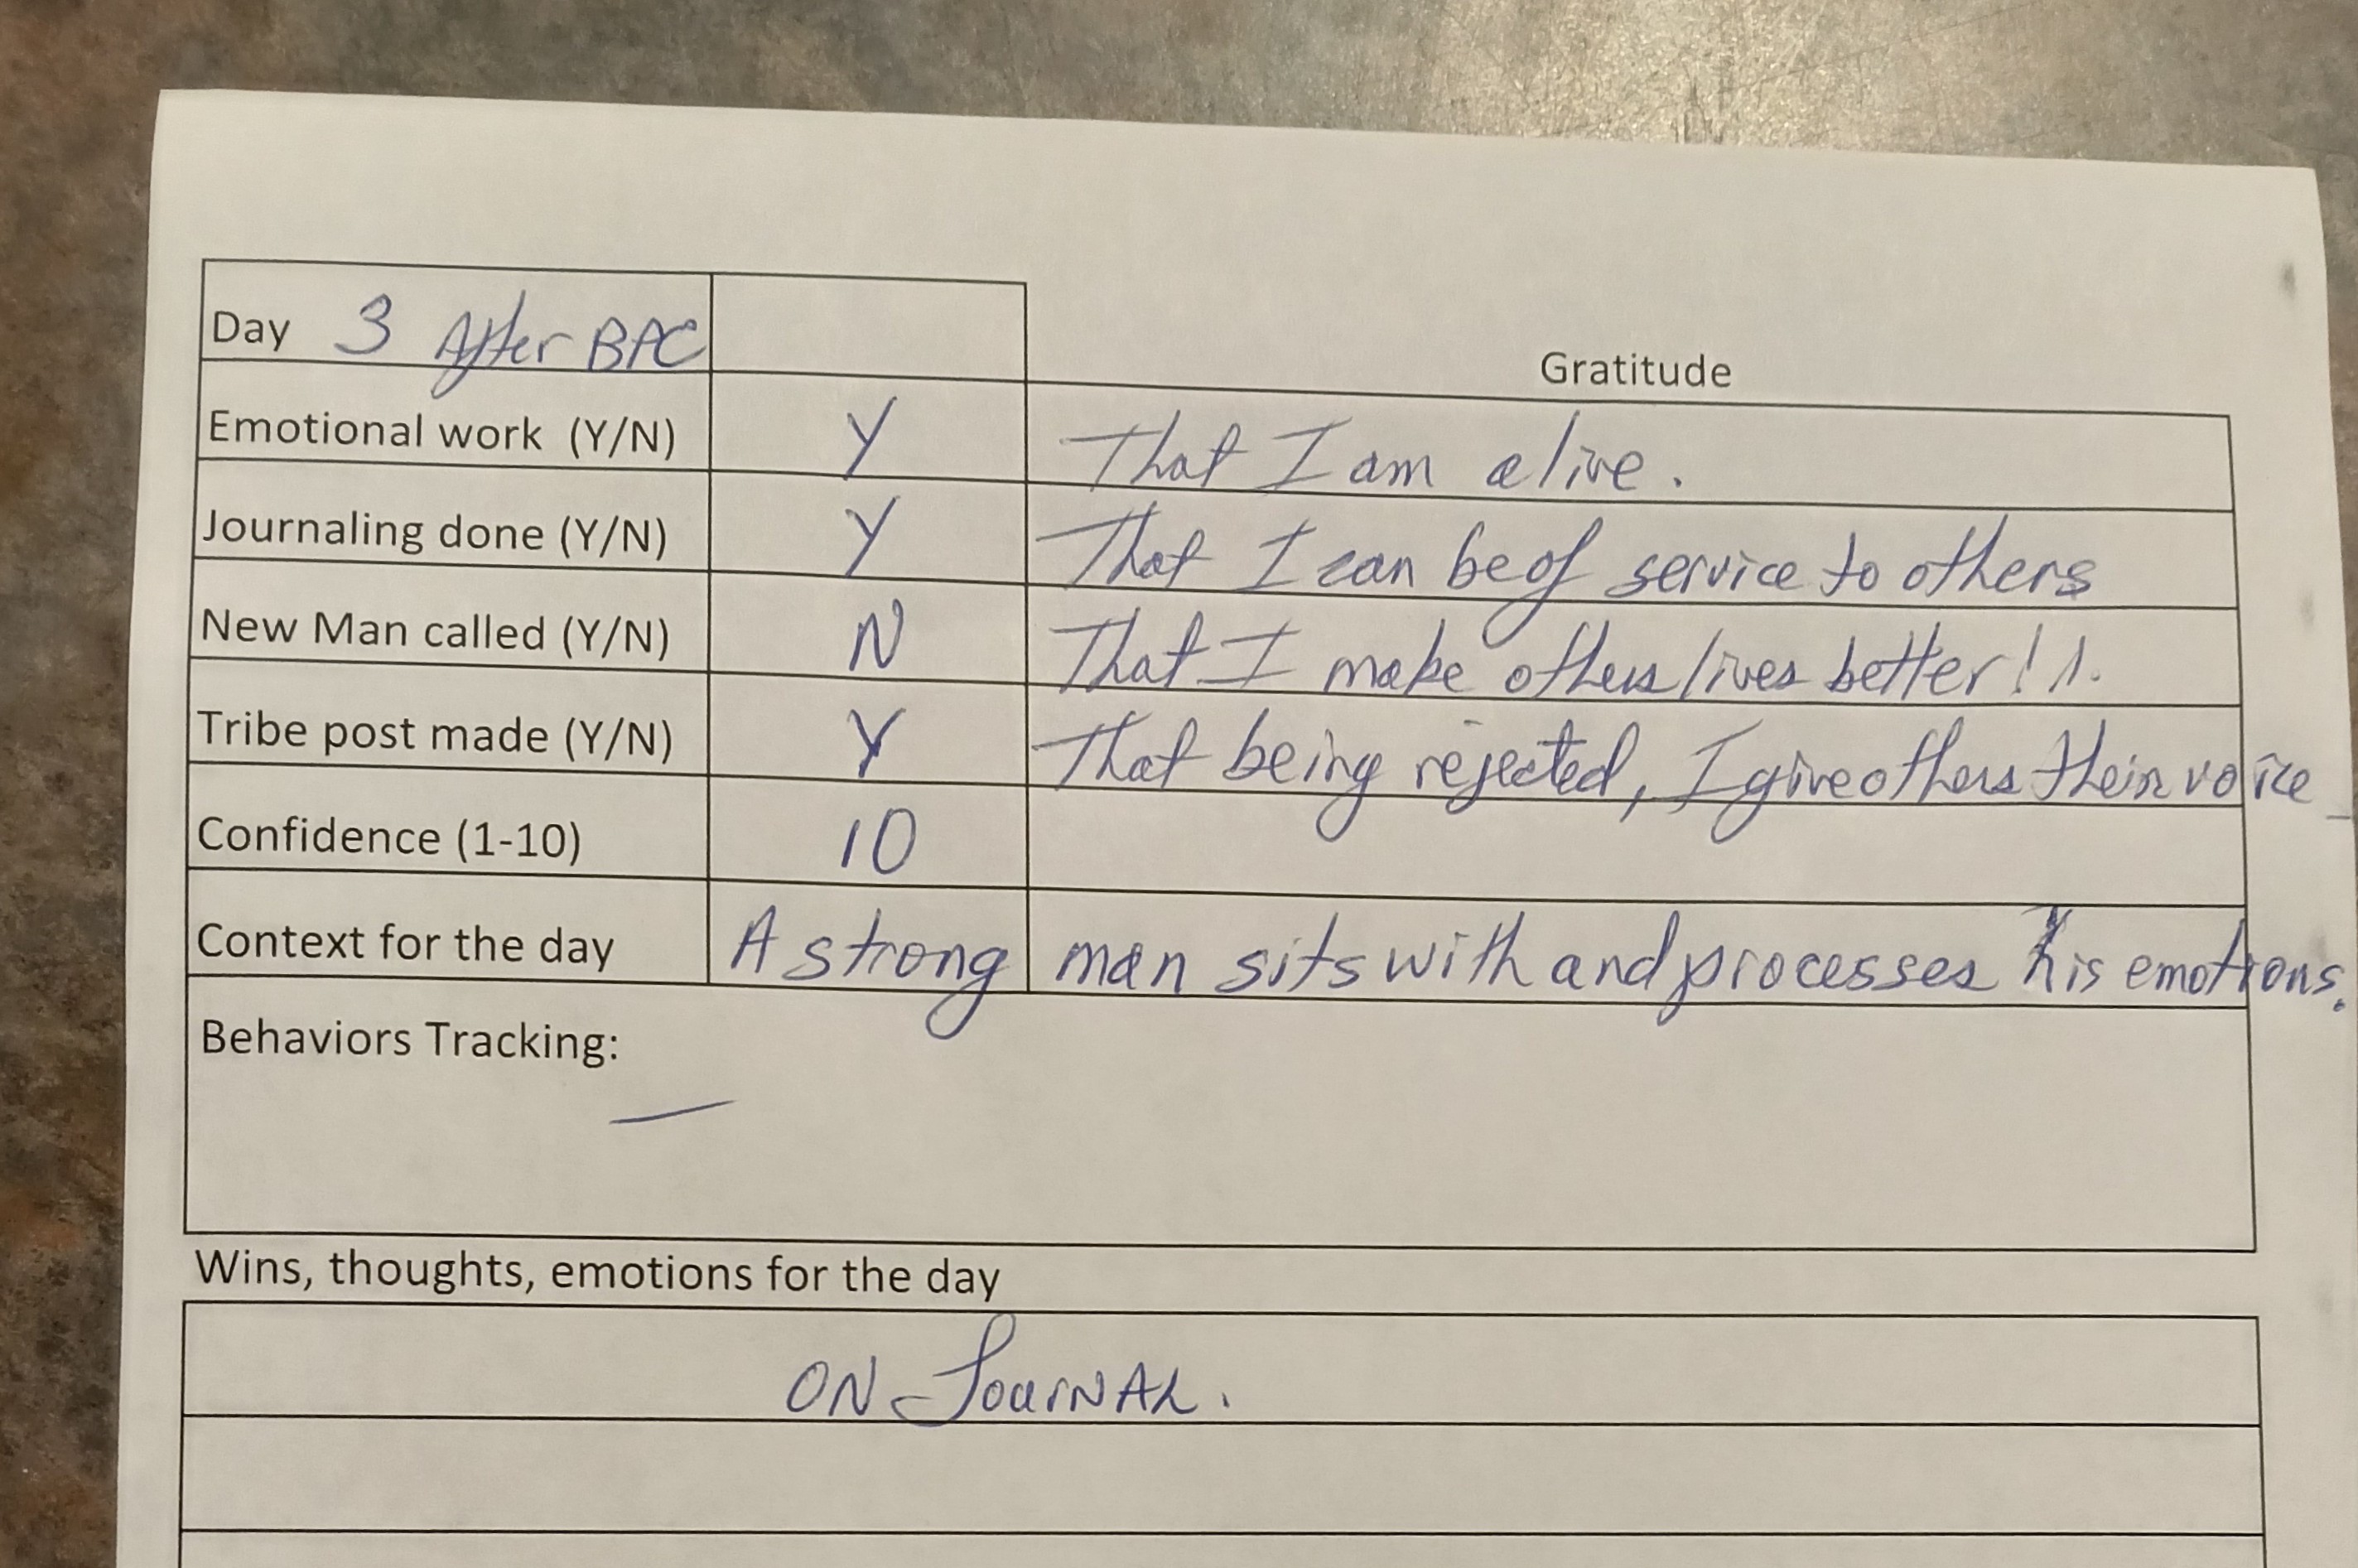 Day 3 After BPC
Gratitude
Emotional work (Y/N) Y That I am alive.
Journaling done (Y/N) Y That I can be of service to others
New Man called (Y/N) N That I make others lives better!!.
Tribe post made (Y/N) Y That being rejected, I give others their voice
Confidence (1-10) 10
Context for the day A strong man sits with and processes his emotions.
Behaviors Tracking:
—
Wins, thoughts, emotions for the day
ON JournAL.